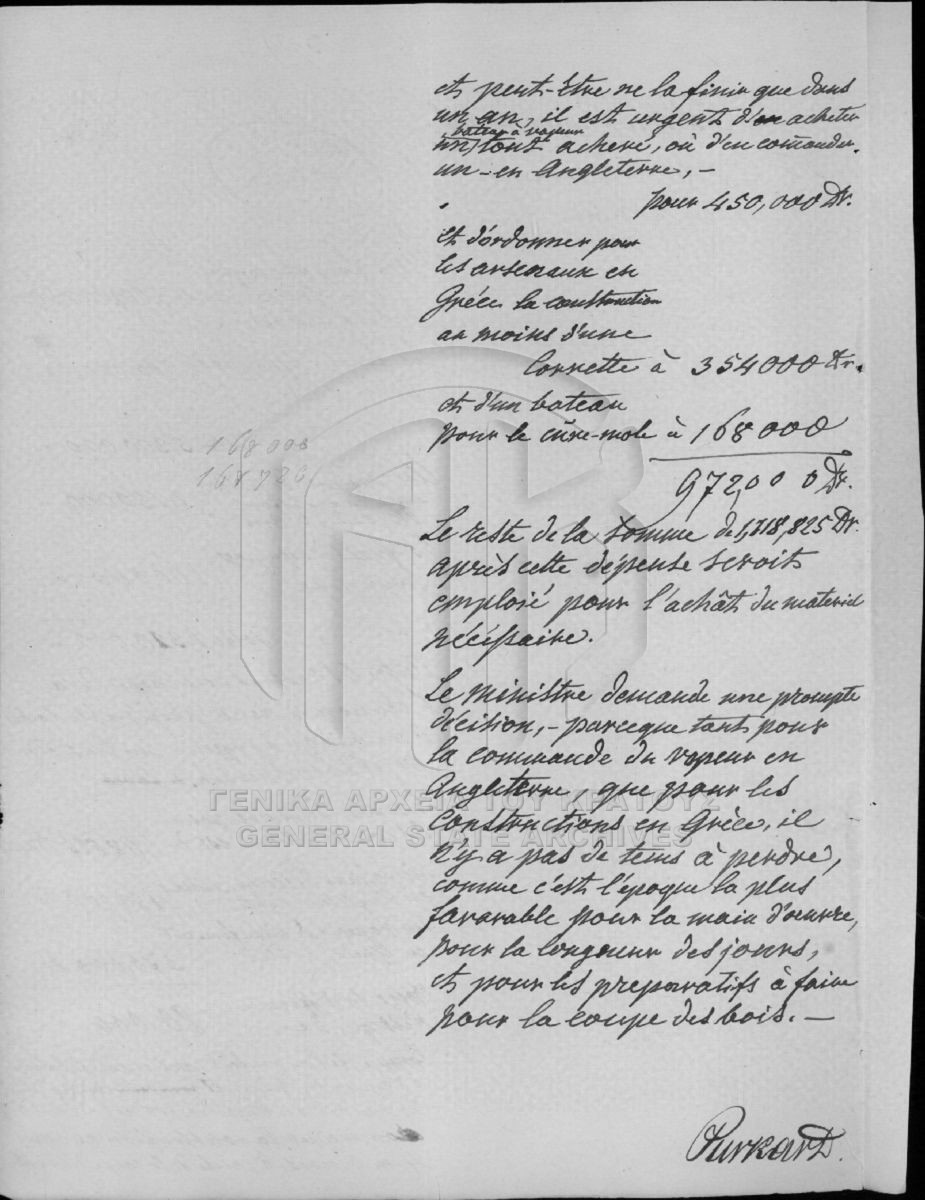 et peut-être ne la finir que dans
un an, il est urgent d'en acheter
bateau à vapeur
un tout acheve, où d'en comander
un en Angleterre, -
pour 450,000 Dr.
et d'ordonner pour
les arsenaux en
Gréce la construction
au moins d'une
Corvette à 354000 Dr.
et d'un bateau
pour le cure-mole à 168000
972,000 Dr.
168 000
168 720
Le reste de la somme de 1,118,825 Dr.
après cette dépense seroit
emploié pour l'achât du materiel
nécéssaire.
Le ministre demande une prompte
décision, - parceque tant pour
la commande du vapeur en
Angleterre, que pour les
Constructions en Grèce, il
n'y a pas de tems à perdre,
comme c'est l'époque la plus
favorable pour la main d'oeuvre,
pour la longueur des jours,
et pour les preparatifs à faire
pour la coupe des bois. —
Purkard.
ΓΕΝΙΚΑ ΑΡΧΕΙΑ ΤΟΥ ΚΡΑΤΟΥΣ
GENERAL STATE ARCHIVES